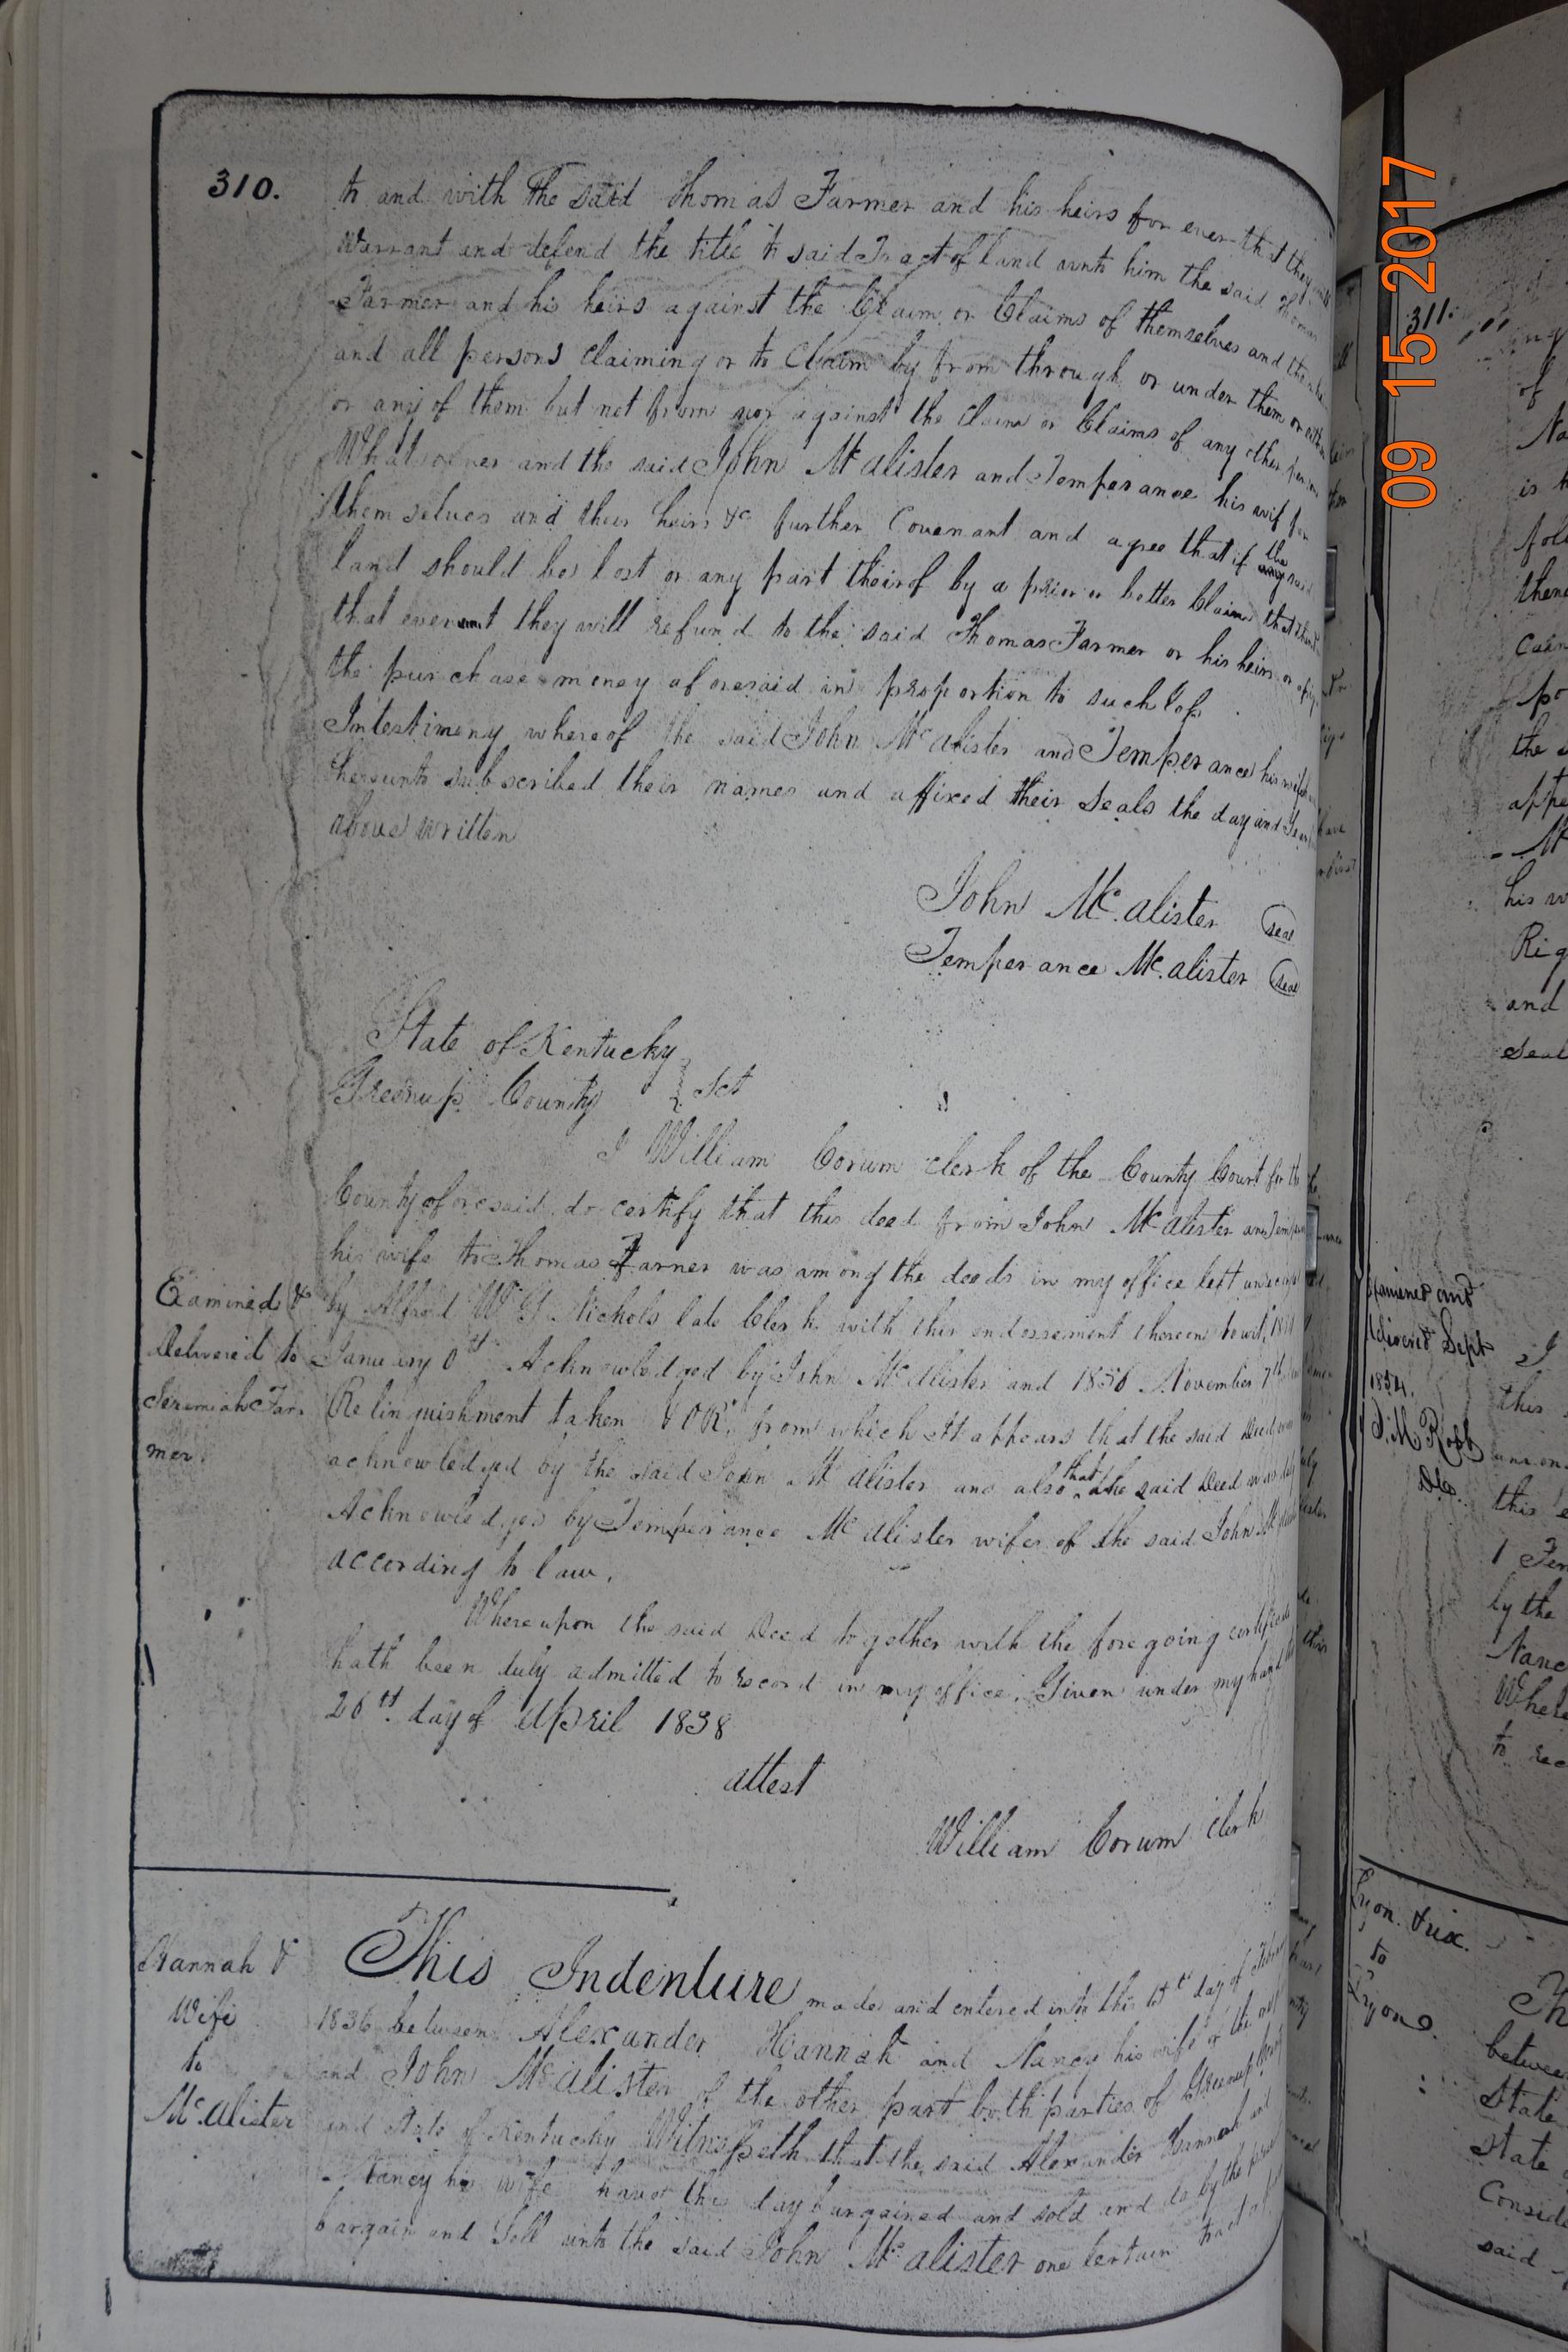 310.
to and with the said Thomas Farmer and his heirs for ever that they will
Warrant and defend the title to said Tract of land unto him the said Thomas
Farmer and his heirs against the Claim or Claims of themselves and their
and all persons claiming or to Claim by from through or under them or either
or any of them but not from nor against the Claim or Claims of any other person
Whatsoever and the said John McAlister and Temperance his wif for
themselves and their heirs &c further Covenant and agree that if the said
land should be lost or any part theirof by a prior or better Claim that then
that event they will refund to the said Thomas Farmer or his heirs or
the purchase money aforesaid in proportion to such loss
Intestimony whereof the said John McAlister and Temperance his wife
hereunto subscribed their names and affixed their Seals the day and Year
above written
John Mc.alister seal
Temperance Mc.alister seal
State of Kentucky
Greenup County } Sct
I William Corum clerk of the County Court for the
County aforesaid do certify that this deed from John McAlister and
his wife to Thomas Farmer was among the deeds in my office left
by Alfred W G Nichols late Clerk with this endorsement thereon towit
January Acknowledged by John McAlister and 1836 November 7th
Relinquishment taken & OR. from which It appears that the said Deed was
acknowledged by the said John McAlister and also that the said Deed was
Acknowledged by Temperance McAlister wife of the said John
according to law.
Examined &
Delivered to
Jeremiah Far.
mer.
Whereupon the said Deed together with the foregoing certificate
hath been duly admitted to record in my office. Given under my hand
26th day of April 1838
attest
William Corum clerk
Hannah &
Wife
to
Mc.Alister
This Indenture made and entered into this 15th day of
1836 between Alexander Hannah and Nancy his wife of the
and John McAlister of the other part both parties of Greenup
and State of Kentucky Witnesseth that the said Alexander Hannah and
Nancy his wife have this day bargained and sold and do by the
bargain and Sell unto the said John McAlister one certain tract
09 15 2017
311.
of
is
the
his w
Rig
and
Seal
Examined and
delivered Sept
1854.
this
by the
Nanc
Where
to rec
Lyon
to
Lyon
Th
between
State
State
Conside
said